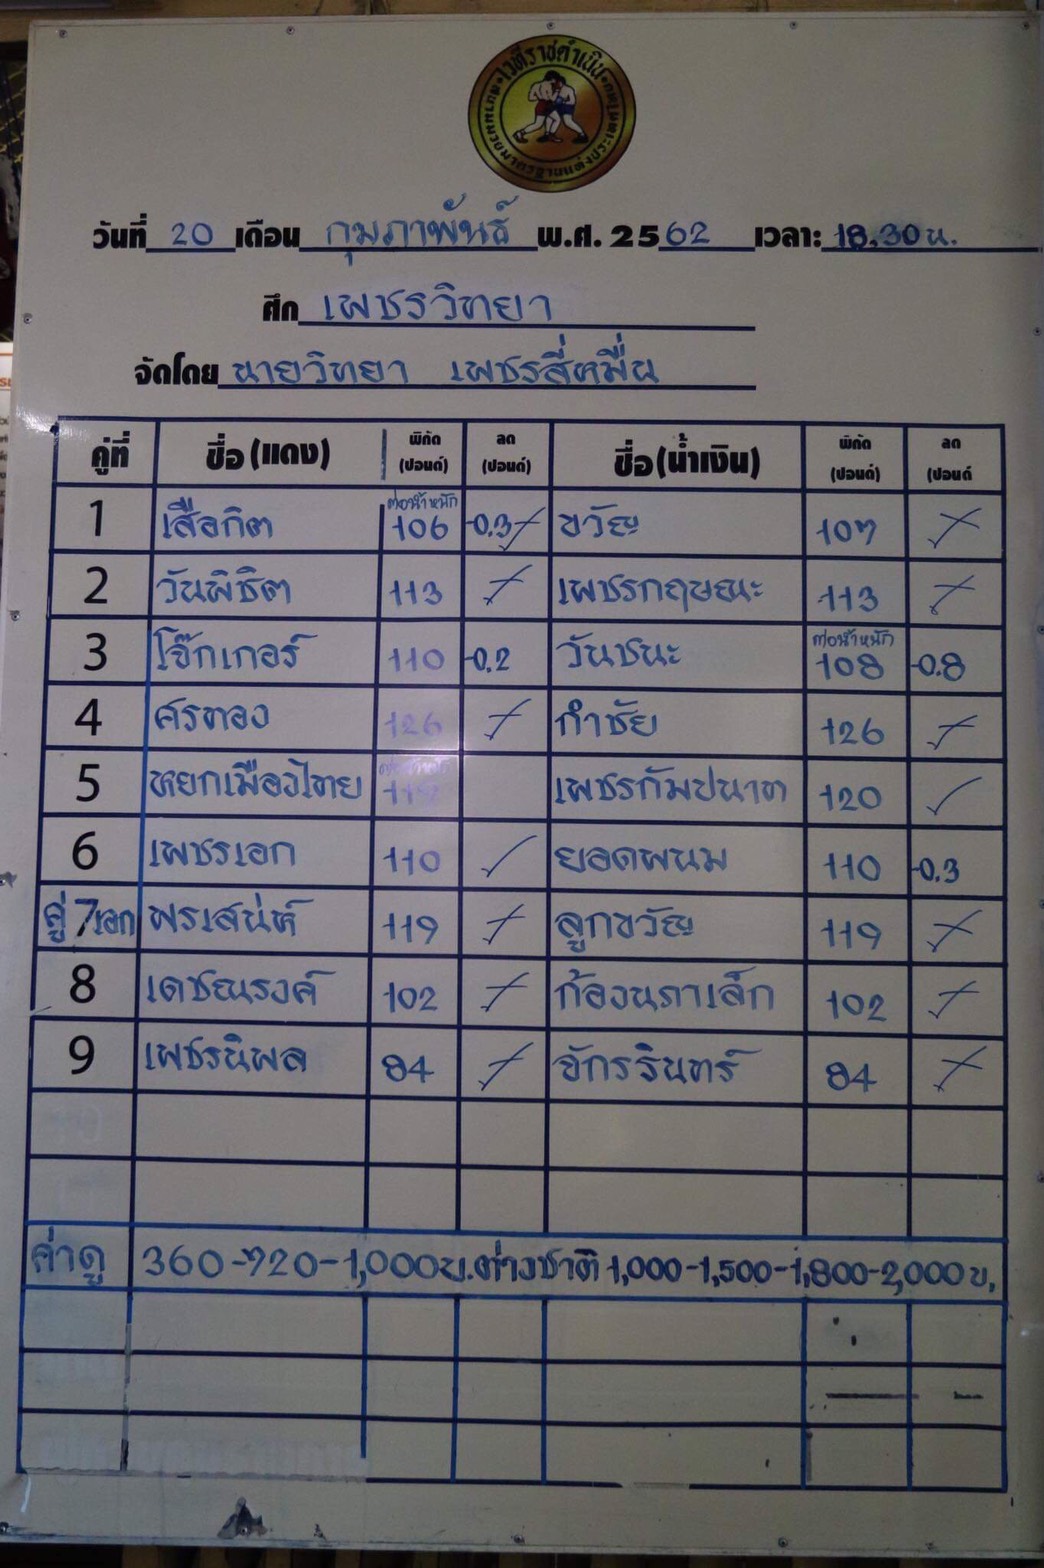 วันที่ 20 เดือน กุมภาพันธ์ พ.ศ. 2562 เวลา: 18.30 น.
ศึก เพชรวิทยา
จัดโดย นายวิทยา เพชรสี่หมื่น
คู่ที่ ชื่อ (แดง) พิกัด (ปอนด์) ลด (ปอนด์) ชื่อ (น้ำเงิน) พิกัด (ปอนด์) ลด (ปอนด์
1 เสือกิต ต่อน้ำหนัก 106 -0.3 ขวัญ 107
2 วันพิชิต 113 เพชรกฤษณะ 113
3 โจ๊กเกอร์ 110 -0.2 วันชนะ ต่อน้ำหนัก 108 -0.8
4 ศรทอง 126 กำชัย 126
5 หยกเมืองไทย เพชรกัมปนาท 120
6 เพชรเอก 110 ยอดพนม 110 -0.3
คู่ 7 เอก พรเสน่ห์ 119 ลูกขวัญ 119
8 เดชณรงค์ 102 ก้องนภาเล็ก 102
9 เพชรนิพล 84 จักรรินทร์ 84
ค่าดู 360-720-1,000 บ. ต่างชาติ 1,000-1,500-1,800-2,000 บ.